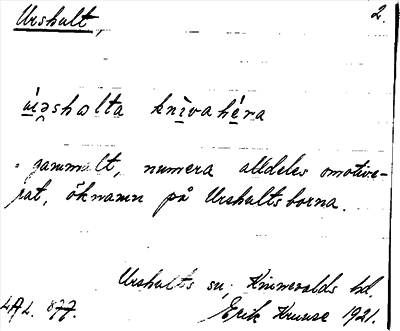 Urshult, 2.
úiəshəlta knìvahéra
= gammalt, numera alldeles omotive-
rat, öknamn på Urshultsborna.
Urshults sn, Kinnevalds hd.
LAL. 877. Erik Kruuse 1921.